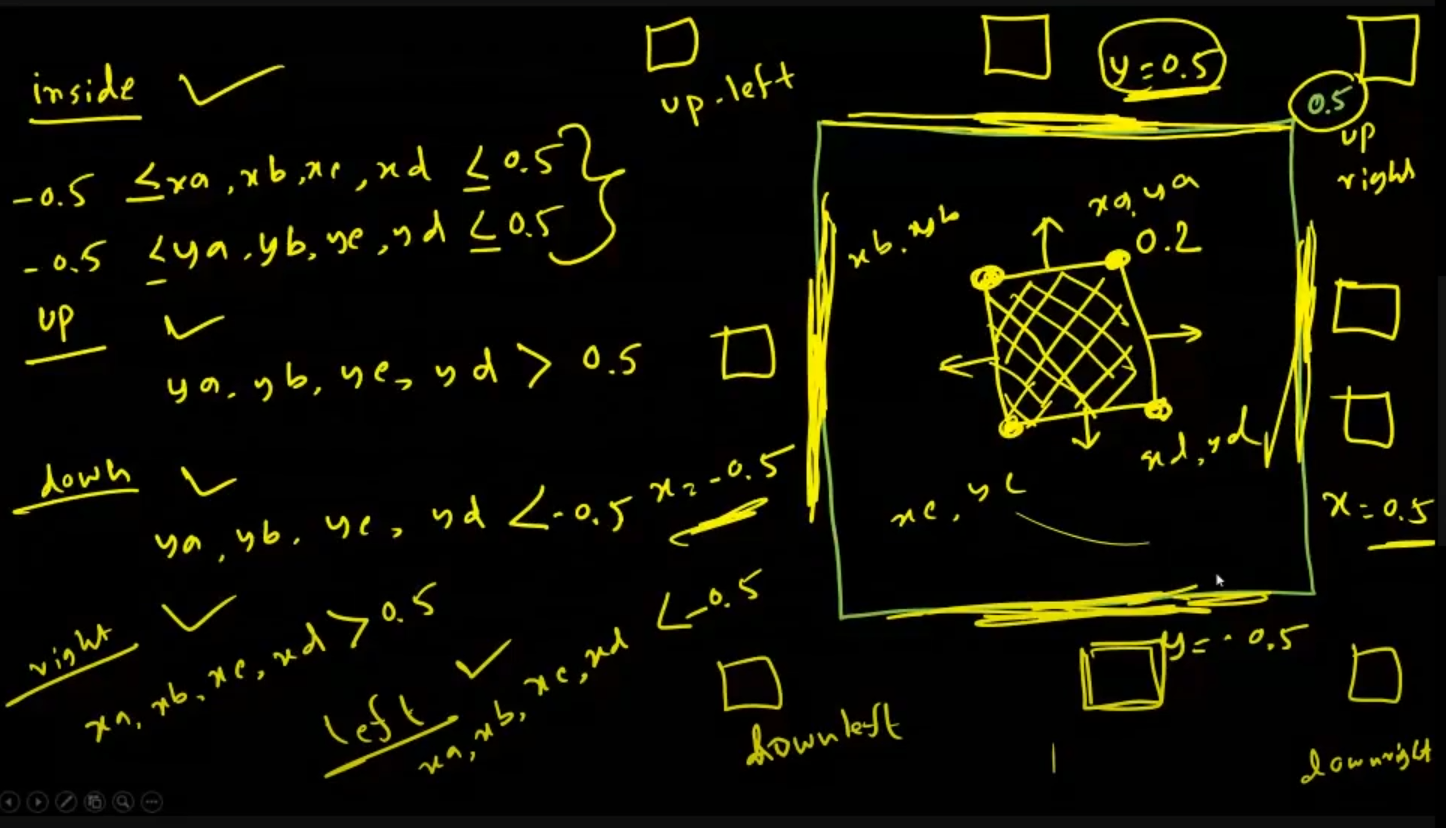 inside
-0.5 ≤ xa, xb, xc, xd ≤ 0.5
-0.5 ≤ ya, yb, yc, yd ≤ 0.5
up
ya, yb, yc, yd > 0.5
down
ya, yb, yc, yd < -0.5
right
xa, xb, xc, xd > 0.5
left
xa, xb, xc, xd < -0.5
up-left
y = 0.5
0.5
up
right
xa, ya
0.2
xb, yb
xc, yc
xd, yd
x = -0.5
x = 0.5
y = -0.5
down left
downright